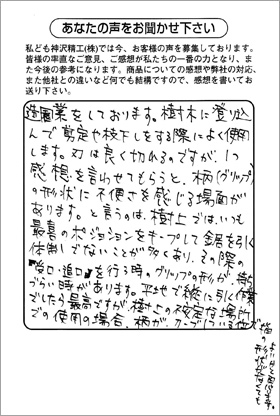 あなたの声をお聞かせ下さい
私ども神沢精工(株)では今、お客様の声を募集しております。
皆様の率直なご意見、ご感想が私たちの一番の力となり、ま
た今後の参考になります。商品についての感想や弊社の対応、
また他社との違いなど何でも結構ですので、感想を書いてお
送り下さい。
造園業をしております。樹木に登り込
んで剪定や枝下しをする際によく使用
します。刃は良く切れるのですが、1つ
感想を言わせてもらうと、柄(グリップ)
の形状に不便さを感じる場面が
あります。と言うのは、樹上ではいつも
最善のポジションをキープして鋸を引く
体制でないことが多くあり、その際の
を行う時のグリップの形が、
づらい時があります。平地で引く作業
でしたら最高ですが、樹上の不安定な場所
での使用の場合、柄が
よいかと思います。